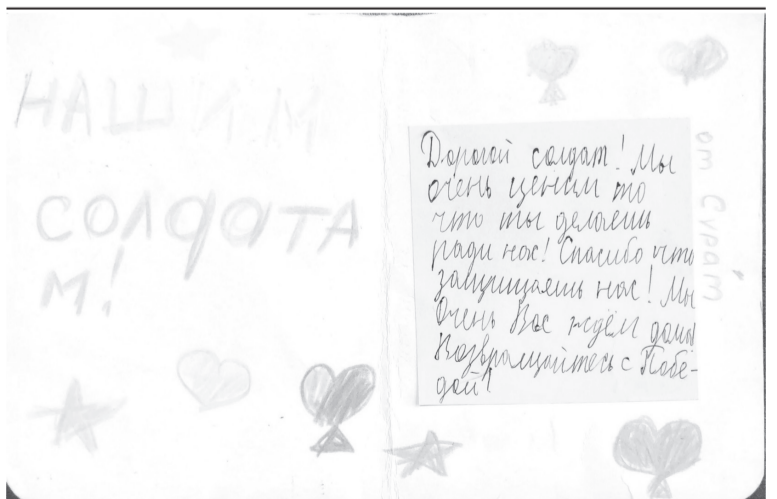 НАШИМ
СОЛДАТА
М!
Дорогой солдат! Мы
очень ценим то
что ты делаешь
ради нас! Спасибо что
защищаешь нас! Мы
Очень Вас ждём домы
Возвращайтесь с Побе-
дой!
от Сурат